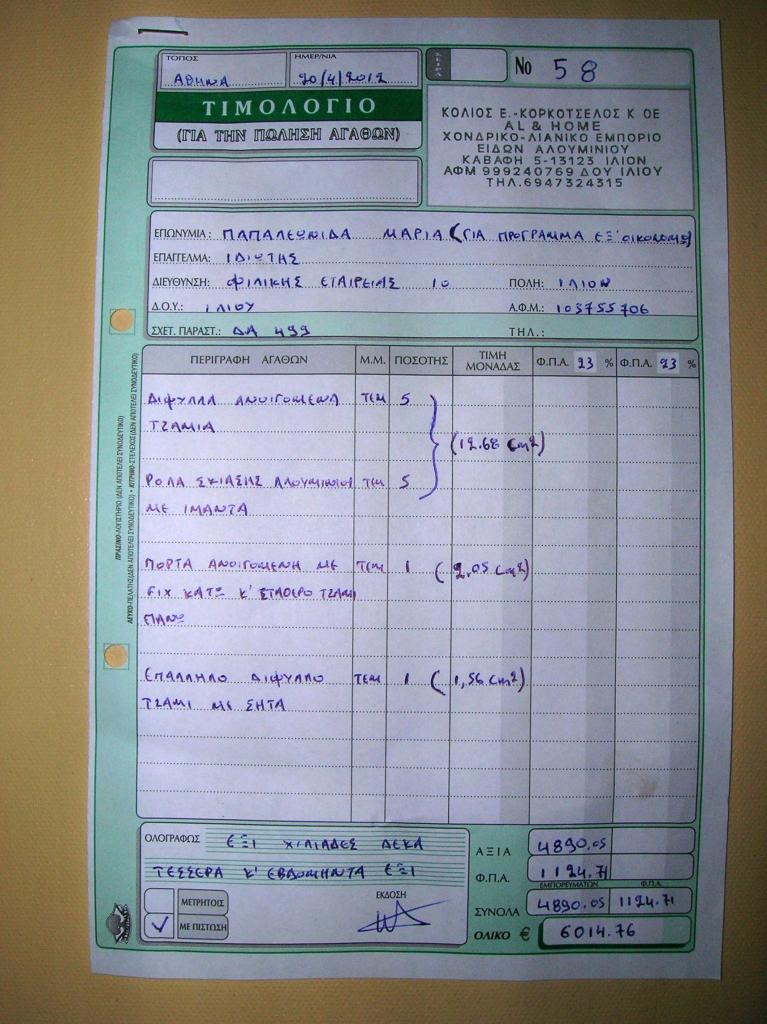 ΤΟΠΟΣ ΑΘΗΝΑ ΗΜΕΡ/ΝΙΑ 20/4/2012
No 58
ΤΙΜΟΛΟΓΙΟ
(ΓΙΑ ΤΗΝ ΠΩΛΗΣΗ ΑΓΑΘΩΝ)
ΚΟΛΙΟΣ Ε.-ΚΟΡΚΟΤΣΕΛΟΣ Κ ΟΕ
AL & HOME
ΧΟΝΔΡΙΚΟ-ΛΙΑΝΙΚΟ ΕΜΠΟΡΙΟ
ΕΙΔΩΝ ΑΛΟΥΜΙΝΙΟΥ
ΚΑΒΑΦΗ 5-13123 ΙΛΙΟΝ
ΑΦΜ 999240769 ΔΟΥ ΙΛΙΟΥ
ΤΗΛ.6947324315
ΕΠΩΝΥΜΙΑ: ΠΑΠΑΛΕΩΝΙΔΑ ΜΑΡΙΑ (ΓΙΑ ΠΡΟΓΡΑΜΜΑ ΕΞ'ΟΙΚΟΝΟΜΩ)
ΕΠΑΓΓΕΛΜΑ: ΙΔΙΩΤΗΣ
ΔΙΕΥΘΥΝΣΗ: ΦΙΛΙΚΗΣ ΕΤΑΙΡΕΙΑΣ 10 ΠΟΛΗ: ΙΛΙΟΝ
Δ.Ο.Υ.: ΙΛΙΟΥ Α.Φ.Μ.: 103755706
ΣΧΕΤ. ΠΑΡΑΣΤ.: ΔΑ 499 ΤΗΛ.:
ΠΕΡΙΓΡΑΦΗ ΑΓΑΘΩΝ Μ.Μ. ΠΟΣΟΤΗΣ ΤΙΜΗ ΜΟΝΑΔΑΣ Φ.Π.Α. 23 % Φ.Π.Α. 23 %
ΔΙΦΥΛΛΑ ΑΝΟΙΓΟΜΕΝΑ ΤΕΜ 5
ΤΖΑΜΙΑ
(12.68 cm2)
ΡΟΛΑ ΣΚΙΑΣΗΣ ΑΛΟΥΜΙΝΙΟΥ ΤΕΜ 5
ΜΕ ΙΜΑΝΤΑ
ΠΟΡΤΑ ΑΝΟΙΓΟΜΕΝΗ ΜΕ ΤΕΜ 1 (2.05 cm2)
FIX ΚΑΤΩ Κ' ΣΤΑΘΕΡΟ ΤΖΑΜΙ
ΠΑΝΩ
ΕΠΑΛΛΗΛΟ ΔΙΦΥΛΛΟ ΤΕΜ 1 (1,56 cm2)
ΤΖΑΜΙ ΜΕ ΣΗΤΑ
ΠΡΑΣΙΝΟ-ΛΟΓΙΣΤΗΡΙΟ (ΔΕΝ ΑΠΟΤΕΛΕΙ ΣΥΝΟΔΕΥΤΙΚΟ)
ΛΕΥΚΟ-ΠΕΛΑΤΗΣ (ΔΕΝ ΑΠΟΤΕΛΕΙ ΣΥΝΟΔΕΥΤΙΚΟ) • ΚΙΤΡΙΝΟ-ΣΤΕΛΕΧΟΣ (ΔΕΝ ΑΠΟΤΕΛΕΙ ΣΥΝΟΔΕΥΤΙΚΟ)
ΟΛΟΓΡΑΦΩΣ ΕΞΙ ΧΙΛΙΑΔΕΣ ΔΕΚΑ
ΤΕΣΣΕΡΑ Κ' ΕΒΔΟΜΗΝΤΑ ΕΞΙ
ΑΞΙΑ 4890.05
Φ.Π.Α. 1124.71
ΕΜΠΟΡΕΥΜΑΤΩΝ Φ.Π.Α.
ΣΥΝΟΛΑ 4890.05 1124.71
ΟΛΙΚΟ € 6014.76
ΜΕΤΡΗΤΟΙΣ
ΜΕ ΠΙΣΤΩΣΗ
ΕΚΔΟΣΗ